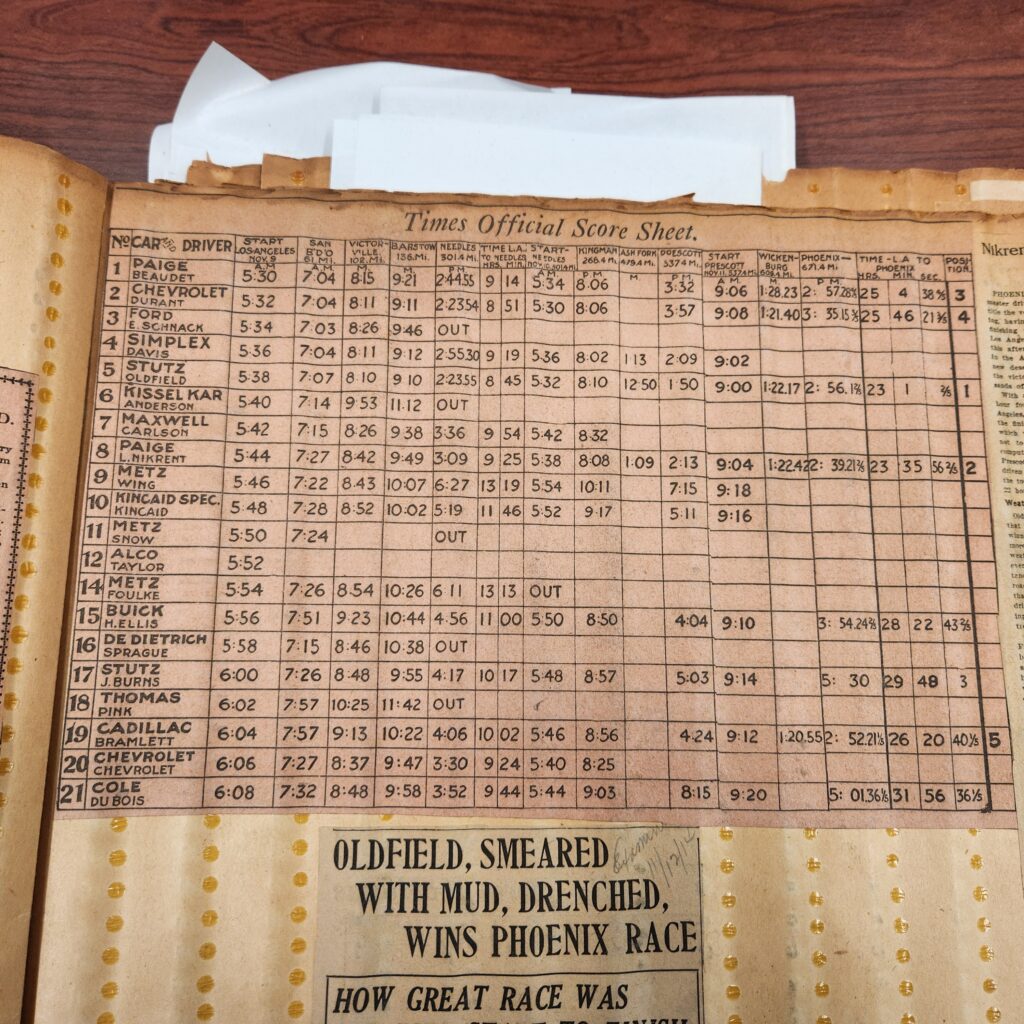 Times Official Score Sheet.
No CAR AND DRIVER START LOS ANGELES NOV. 9 A.M. SAN B'D'O 61 MI. A.M. VICTOR-VILLE 102 MI. A.M. BARSTOW 136 MI. NEEDLES 301.4 MI. P.M. TIME L.A. TO NEEDLES HRS. MIN. START- NEEDLES A.M. KINGMAN P.M. ASH FORK M. PRESCOTT 537.4 MI. P.M. START PRESCOTT NOV. 11, 537.4 MI. A.M. WICKEN-BURG PHOENIX- 671.4 MI P.M. TIME - L.A TO PHOENIX HRS. MIN. SEC. POSI TION.
1 PAIGE BEAUDET 5:30 7:04 8:15 9:21 2:44.55 9 14 5:34 8:06 3:32 9:06 1:28.23 2: 57.28⅗ 25 4 38⅗ 3
2 CHEVROLET DURANT 5:32 7:04 8:11 9:11 2:23.54 8 51 5:30 8:06 3:57 9:08 1:21.40 3: 35.15⅗ 25 46 21⅗ 4
3 FORD E. SCHNACK 5:34 7:03 8:26 9:46 OUT
4 SIMPLEX DAVIS 5:36 7:04 8:11 9:12 2:55.30 9 19 5:36 8:02 1 13 2:09 9:02
5 STUTZ OLDFIELD 5:38 7:07 8:10 9 10 2:23.55 8 45 5:32 8:10 12:50 1:50 9:00 1:22.17 2: 56.1⅖ 23 1 ⅖ 1
6 KISSEL KAR ANDERSON 5:40 7:14 9:53 11.12 OUT
7 MAXWELL CARLSON 5:42 7:15 8:26 9 38 3:36 9 54 5:42 8:32
8 PAIGE L. NIKRENT 5:44 7:27 8:42 9:49 3:09 9 25 5:38 8:08 1:09 2:13 9:04 1:22.42 2: 39.21⅖ 23 35 56⅖ 2
9 METZ WING 5:46 7:22 8.43 10:07 6:27 13 19 5:54 10:11 7:15 9:18
10 KINCAID SPEC. KINCAID 5:48 7:28 8:52 10:02 5:19 11 46 5:52 9:17 5:11 9:16
11 METZ SNOW 5:50 7:24 OUT
12 ALCO TAYLOR 5:52
14 METZ FOULKE 5:54 7:26 8.54 10:26 6 11 13 13 OUT
15 BUICK H. ELLIS 5:56 7:51 9:23 10:44 4:56 11 00 5:50 8:50 4:04 9:10 3: 54.24⅖ 28 22 43⅖
16 DE DIETRICH SPRAGUE 5:58 7:15 8:46 10:38 OUT
17 STUTZ J. BURNS 6:00 7:26 8:48 9:55 4:17 10 17 5:48 8:57 5:03 9:14 5: 30 29 48 3
18 THOMAS PINK 6:02 7:57 10:25 11:42 OUT
19 CADILLAC BRAMLETT 6:04 7:57 9:13 10:22 4:06 10 02 5:46 8:56 4:24 9:12 1:20.55 2: 52.21⅕ 26 20 40⅕ 5
20 CHEVROLET CHEVROLET 6:06 7:27 8:37 9:47 3:30 9 24 5:40 8:25
21 COLE DU BOIS 6:08 7:32 8:48 9:58 3:52 9 44 5:44 9:03 8:15 9:20 5: 01.36⅕ 31 56 36⅕
OLDFIELD, SMEARED
WITH MUD, DRENCHED,
WINS PHOENIX RACE
HOW GREAT RACE WAS